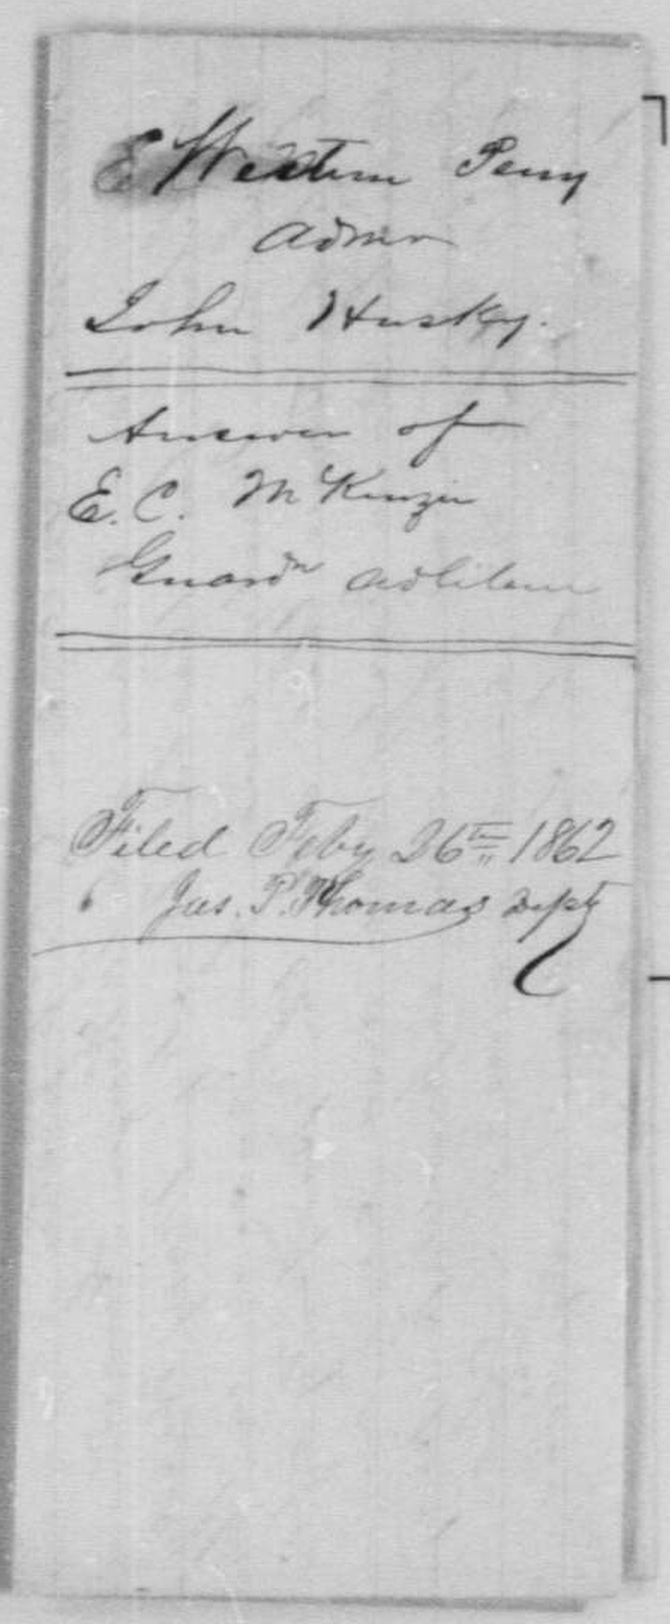 E Western Perry
Admr
John Husky.
Answer of
E. C. McKenzie
Guardn ad litem
Filed Feby 26th 1862
Jas. P. Thomas Dept